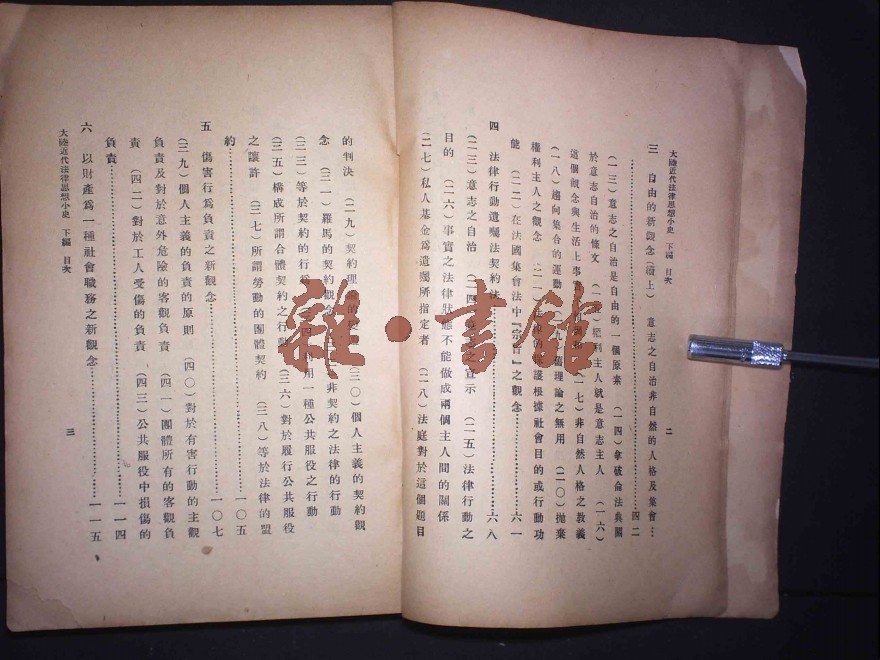 大陸近代法律思想小史 下編 目次
三 自由的新觀念(續上) 意志之自治非自然的人格及集會…
……四二
(一三)意志之自治是自由的一個原素 (一四)拿破侖法典關
於意志自治的條文 (一五)權利主人就是意志主人 (一六)
這個觀念與生活上事實 (一七)非自然人格之教義
(一八)趨向集合的運動 理論之無用 (二〇)拋棄
權利主人之觀念 (二一)法律的保護根據社會目的或行動功
能 (二二)在法國集會法中『宗旨』之觀念……六一
四 法律行動遺囑法契約法……六八
(二三)意志之自治 (二四)意志之宣示 (二五)法律行動之
目的 (二六)事實之法律狀態不能做成兩個主人間的關係
(二七)私人基金爲遺囑所指定者 (二八)法庭對於這個題目
二
的判決 (二九)契約理論的 (三〇)個人主義的契約觀
念 (三一)羅馬的契約觀念 非契約之法律的行動
(三三)等於契約的行爲 用一種公共服役之行動
(三五)構成所謂合體契約之行動 (三六)對於履行公共服役
之讓許 (三七)所謂勞動的團體契約 (三八)等於法律的盟
約……一〇五
五 傷害行爲負責之新觀念……一〇七
(三九)個人主義的負責的原則 (四〇)對於有害行動的主觀
負責及對於意外危險的客觀負責 (四一)團體所有的客觀負
責 (四二)對於工人受傷的負責 (四三)公共服役中損傷的
負責……一一四
六 以財產爲一種社會職務之新觀念……一一五
大陸近代法律思想小史 下編 目次
三
雜·書館